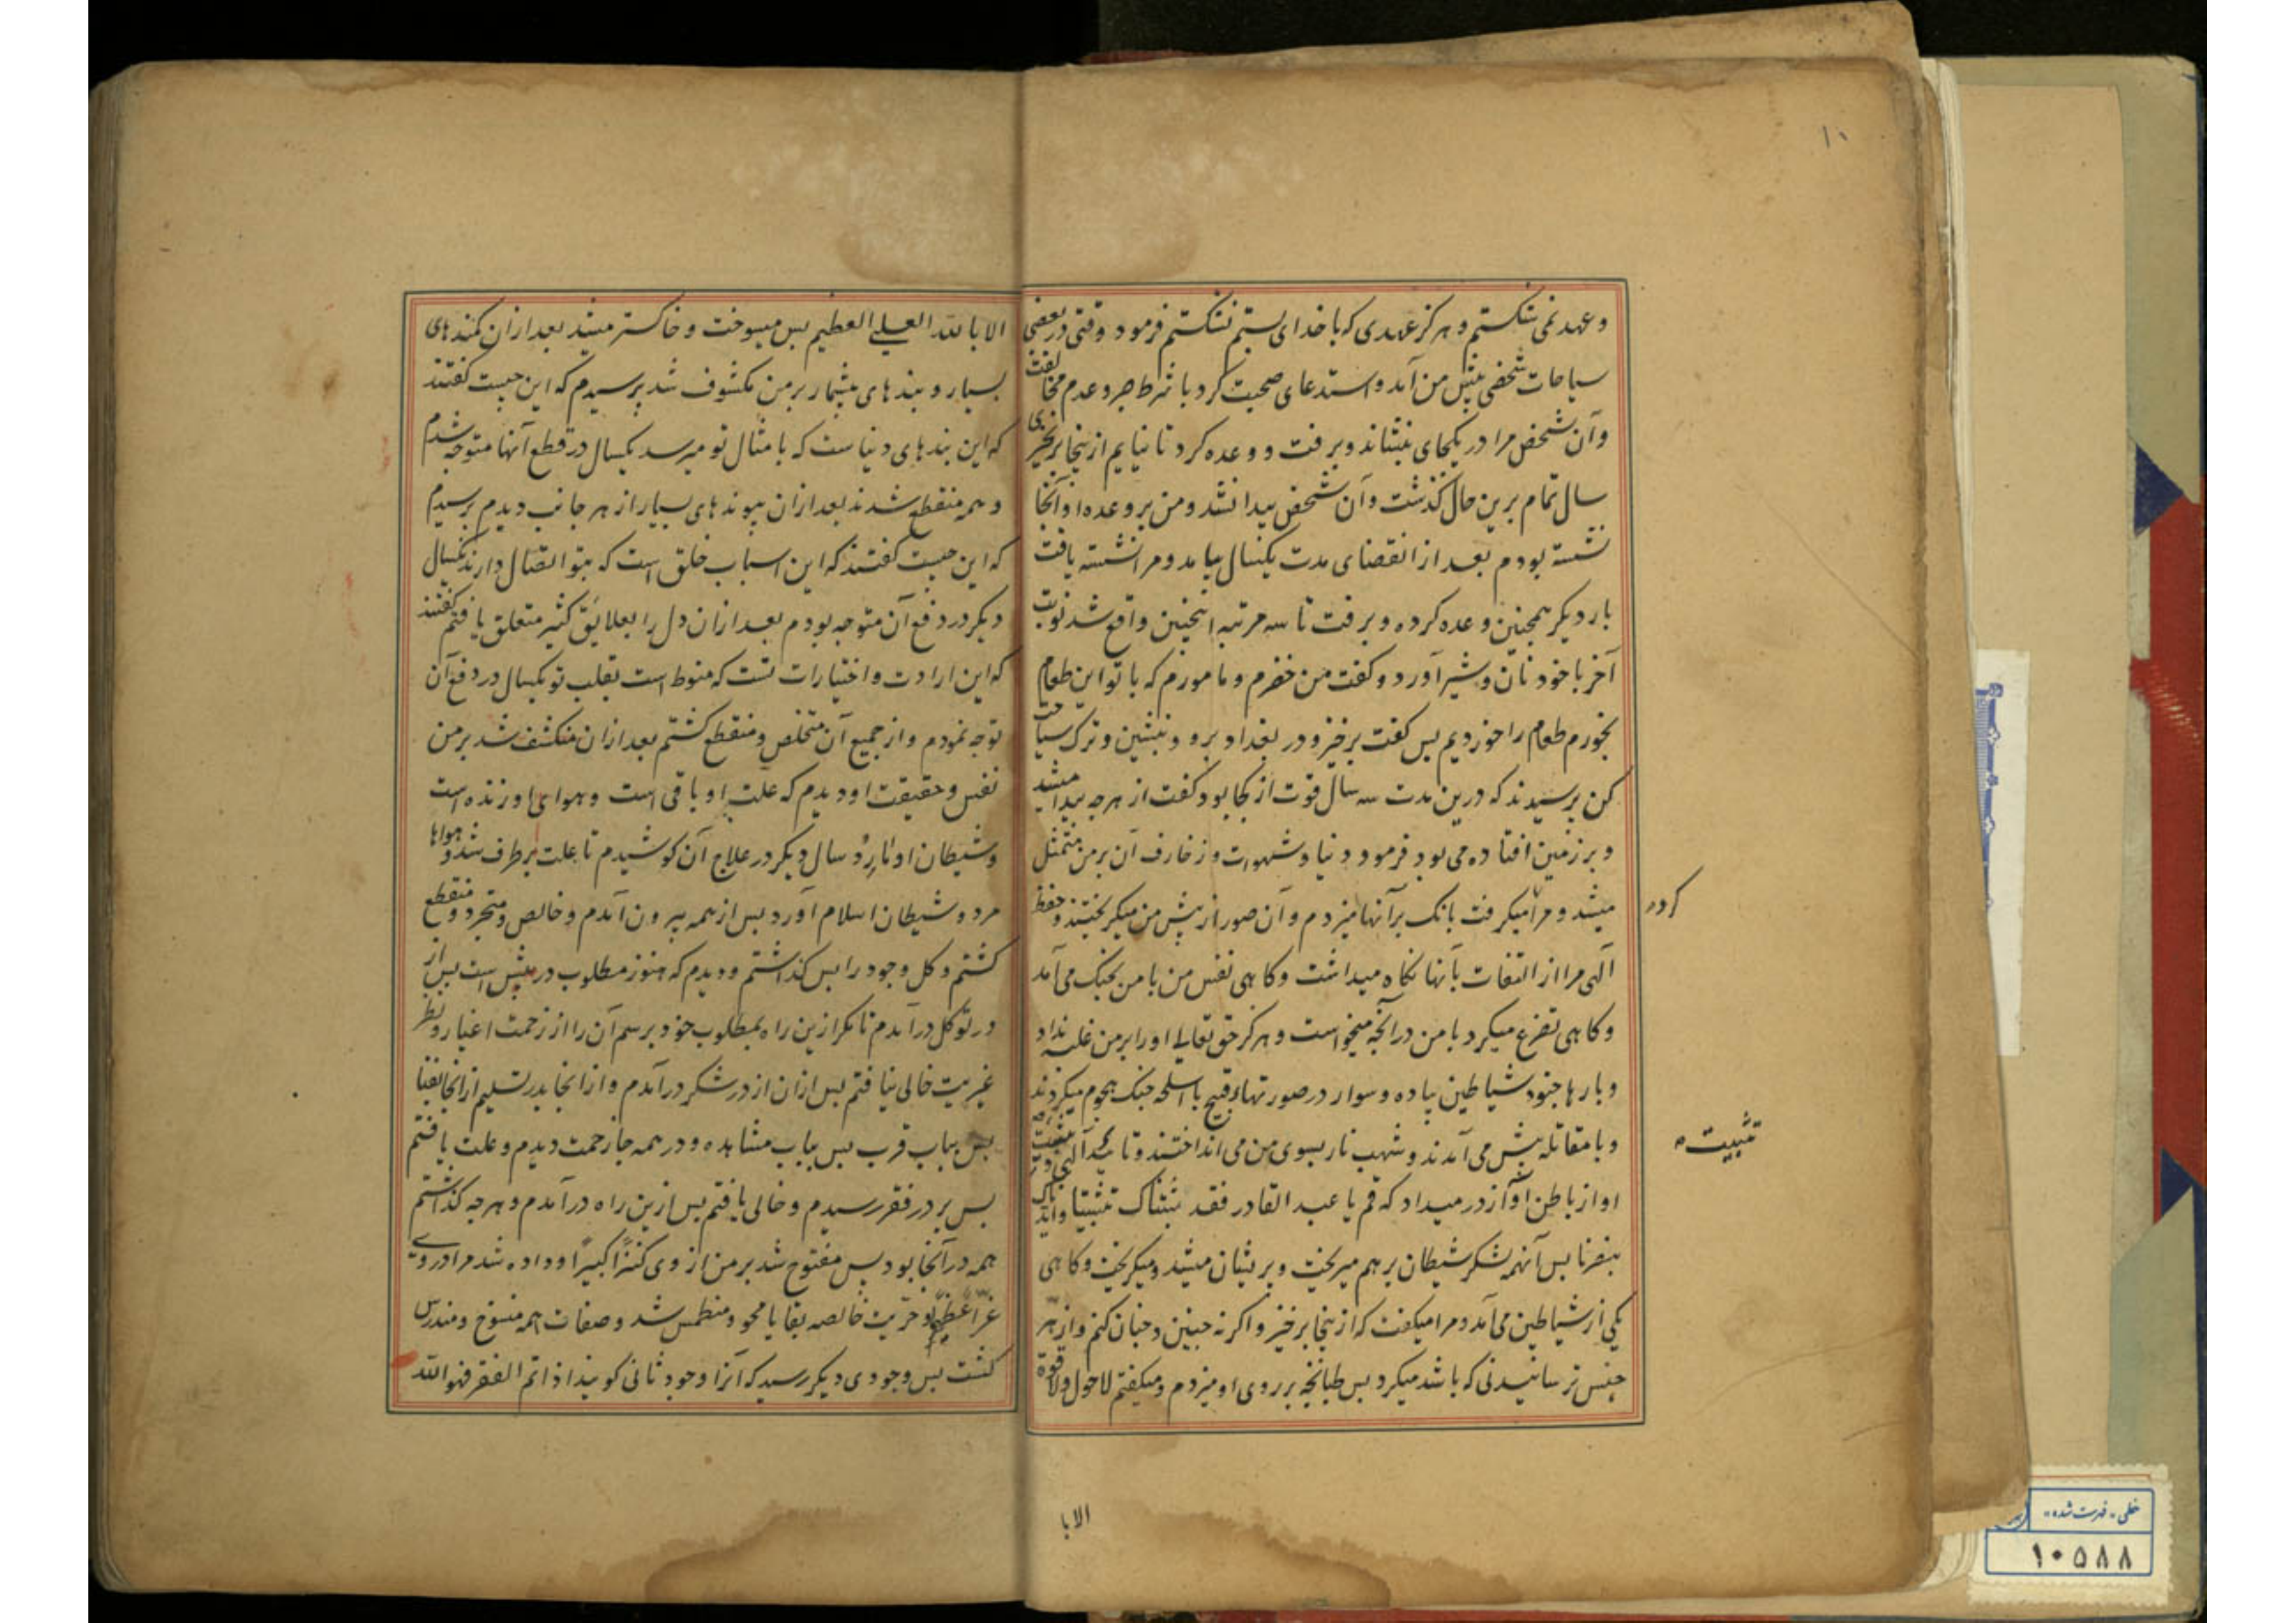 ۱۰
و عهد نمی شکستم و هرگز عهدی که با خدای بستم نشکستم فرمود وقتی در بعضی
سیاحات شخصی پیش من آمد و استدعای صحبت کرد با شرط صبر و عدم مخالفت
و آن شخص مرا در یکجای بنشاند و برفت و وعده کرد تا نیایم ازینجا برنخیزی
سال تمام برین حال گذشت و آن شخص پیدا نشد و من بر وعده او آنجا
نشسته بودم بعد از انقضای مدت یکسال بیامد و مرا نشسته یافت
بار دیگر همچنین وعده کرده و برفت تا سه مرتبه اینچنین واقع شد نوبت
آخر با خود نان و شیر آورد و گفت من خضرم و مامورم که با تو این طعام
بخورم طعام را خوردیم پس گفت برخیز و در بغداد برو و بنشین و ترک سیاحت
کن پرسیدند که درین مدت سه سال قوت از کجا بود گفت از هرچه پیدا میشد
و بر زمین افتاده می بود فرمود دنیا و شهوات و زخارف آن بر من متمثل
میشد و مرا میگرفت بانک بر آنها میزدم و آن صور از پیش من میگریختند و حفظ
الهی مرا از التفات بآنها نگاه میداشت و گاهی نفس من با من بجنک می آمد
و گاهی تضرع میکرد با من در آنچه میخواست و هرگز حق تعالی او را بر من غلبه نداد
و بارها جنود شیاطین پیاده و سوار در صورتهاء قبیح با اسلحه جنک هجوم میکردند
و با مقاتله پیش می آمدند و شهب نار بسوی من می انداختند و تائید آلهی و تثبیت
او از باطن آواز در میداد که قم یا عبد القادر فقد ثبتناک تثبیتا و ایدناک
بنصرنا پس آنهمه لشکر شیطان برهم میریخت و پریشان میشد و میگریخت و گاهی
یکی از شیاطین می آمد و مرا میگفت که ازینجا برخیز و اگرنه چنین و چنان کنم و از هر
جنس ترسانیدنی که باشد میکرد پس طبانچه بر روی او میزدم و میگفتم لا حول ولا قوة
کرد
تثبیت
الا با
الا بالله العلی العظیم پس میسوخت و خاکستر میشد بعد ازان کمندهای
بسیار و بندهای بیشمار بر من مکشوف شد پرسیدم که این چیست گفتند
که این بندهای دنیاست که بامثال تو میرسد یکسال در قطع آنها متوجه شدم
و همه منقطع شدند بعد ازان پیوندهای بسیار از هر جانب دیدم پرسیدم
که این چیست گفتند که این اسباب خلق است که بتو اتصال دارند یکسال
دیگر در دفع آن متوجه بودم بعد ازان دل را بعلایق کثیر متعلق یافتم گفتند
که این ارادت و اختیارات تست که منوط است بقلب تو یکسال در دفع آن
توجه نمودم و از جمیع آن متخلص و منقطع گشتم بعد ازان منکشف شد بر من
نفس و حقیقت او دیدم که علت او باقی است و هوای او زنده است
و شیطان او مارد سال دیگر در علاج آن کوشیدم تا علت برطرف شد و هواها
مرد و شیطان اسلام آورد پس از همه بیرون آمدم و خالص و متجرد و منقطع
گشتم و کل وجود را پس گذاشتم و دیدم که هنوز مطلوب در پیش است پس از
در توکل درآمدم تا مگر ازین راه بمطلوب خود برسم آن را از زحمت اغیار و نظر
غیریت خالی نیافتم پس ازان از در شکر درآمدم و از آنجا بدر تسلیم از آنجا بغنا
پس بباب قرب پس بباب مشاهده و در همه جا زحمت دیدم و علت یافتم
پس بر در فقر رسیدم و خالی یافتم پس ازین راه درآمدم و هرچه گذاشتم
همه در آنجا بود پس مفتوح شد بر من از وی کنزا کبیرا و داده شد مرا در وی
عزا عظیما و حریت خالصه بقایا محو و منطمس شد و صفات همه منسوخ و مندرس
گشت پس وجودی دیگر رسید که آنرا وجود ثانی گویند اذا تم الفقر فهو الله
خطی - فهرست شده
۱۰۵۸۸